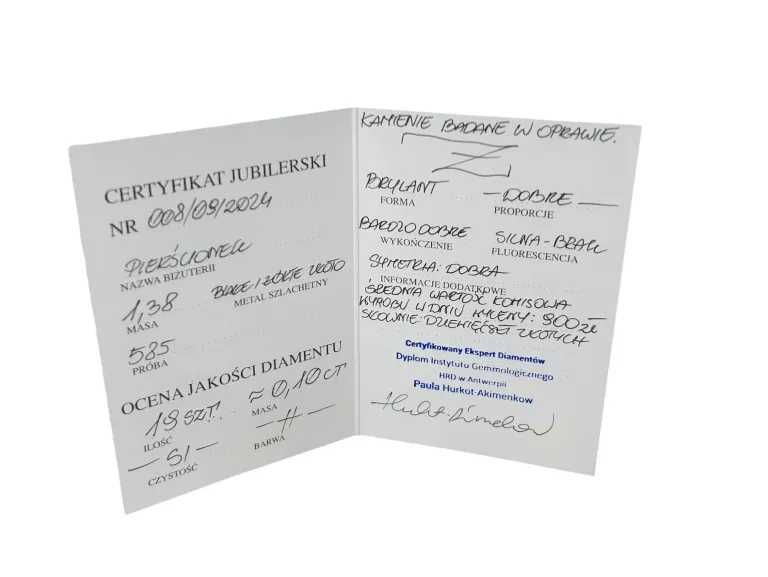 CERTYFIKAT JUBILERSKI
NR 008/09/2024
PIERŚCIONEK
NAZWA BIŻUTERII
1,38 BIAŁE/ŻÓŁTE ZŁOTO
MASA METAL SZLACHETNY
585
PRÓBA
OCENA JAKOŚCI DIAMENTU
19 SZT. ≈ 0,10 CT
ILOŚĆ MASA
— SI — — H —
CZYSTOŚĆ BARWA
KAMIENIE BADANE W OPRAWIE.
BRYLANT — DOBRE —
FORMA PROPORCJE
BARDZO DOBRE SILNA - BRAK
WYKOŃCZENIE FLUORESCENCJA
SYMETRIA: DOBRA
INFORMACJE DODATKOWE
ŚREDNIA WARTOŚĆ KOMISOWA
WYROBU W DNIU WYCENY: 900 ZŁ
SŁOWNIE: DZIEWIĘĆSET ZŁOTYCH
Certyfikowany Ekspert Diamentów
Dyplom Instytutu Gemmologicznego
HRD w Antwerpii
Paula Hurkot-Akimenkow